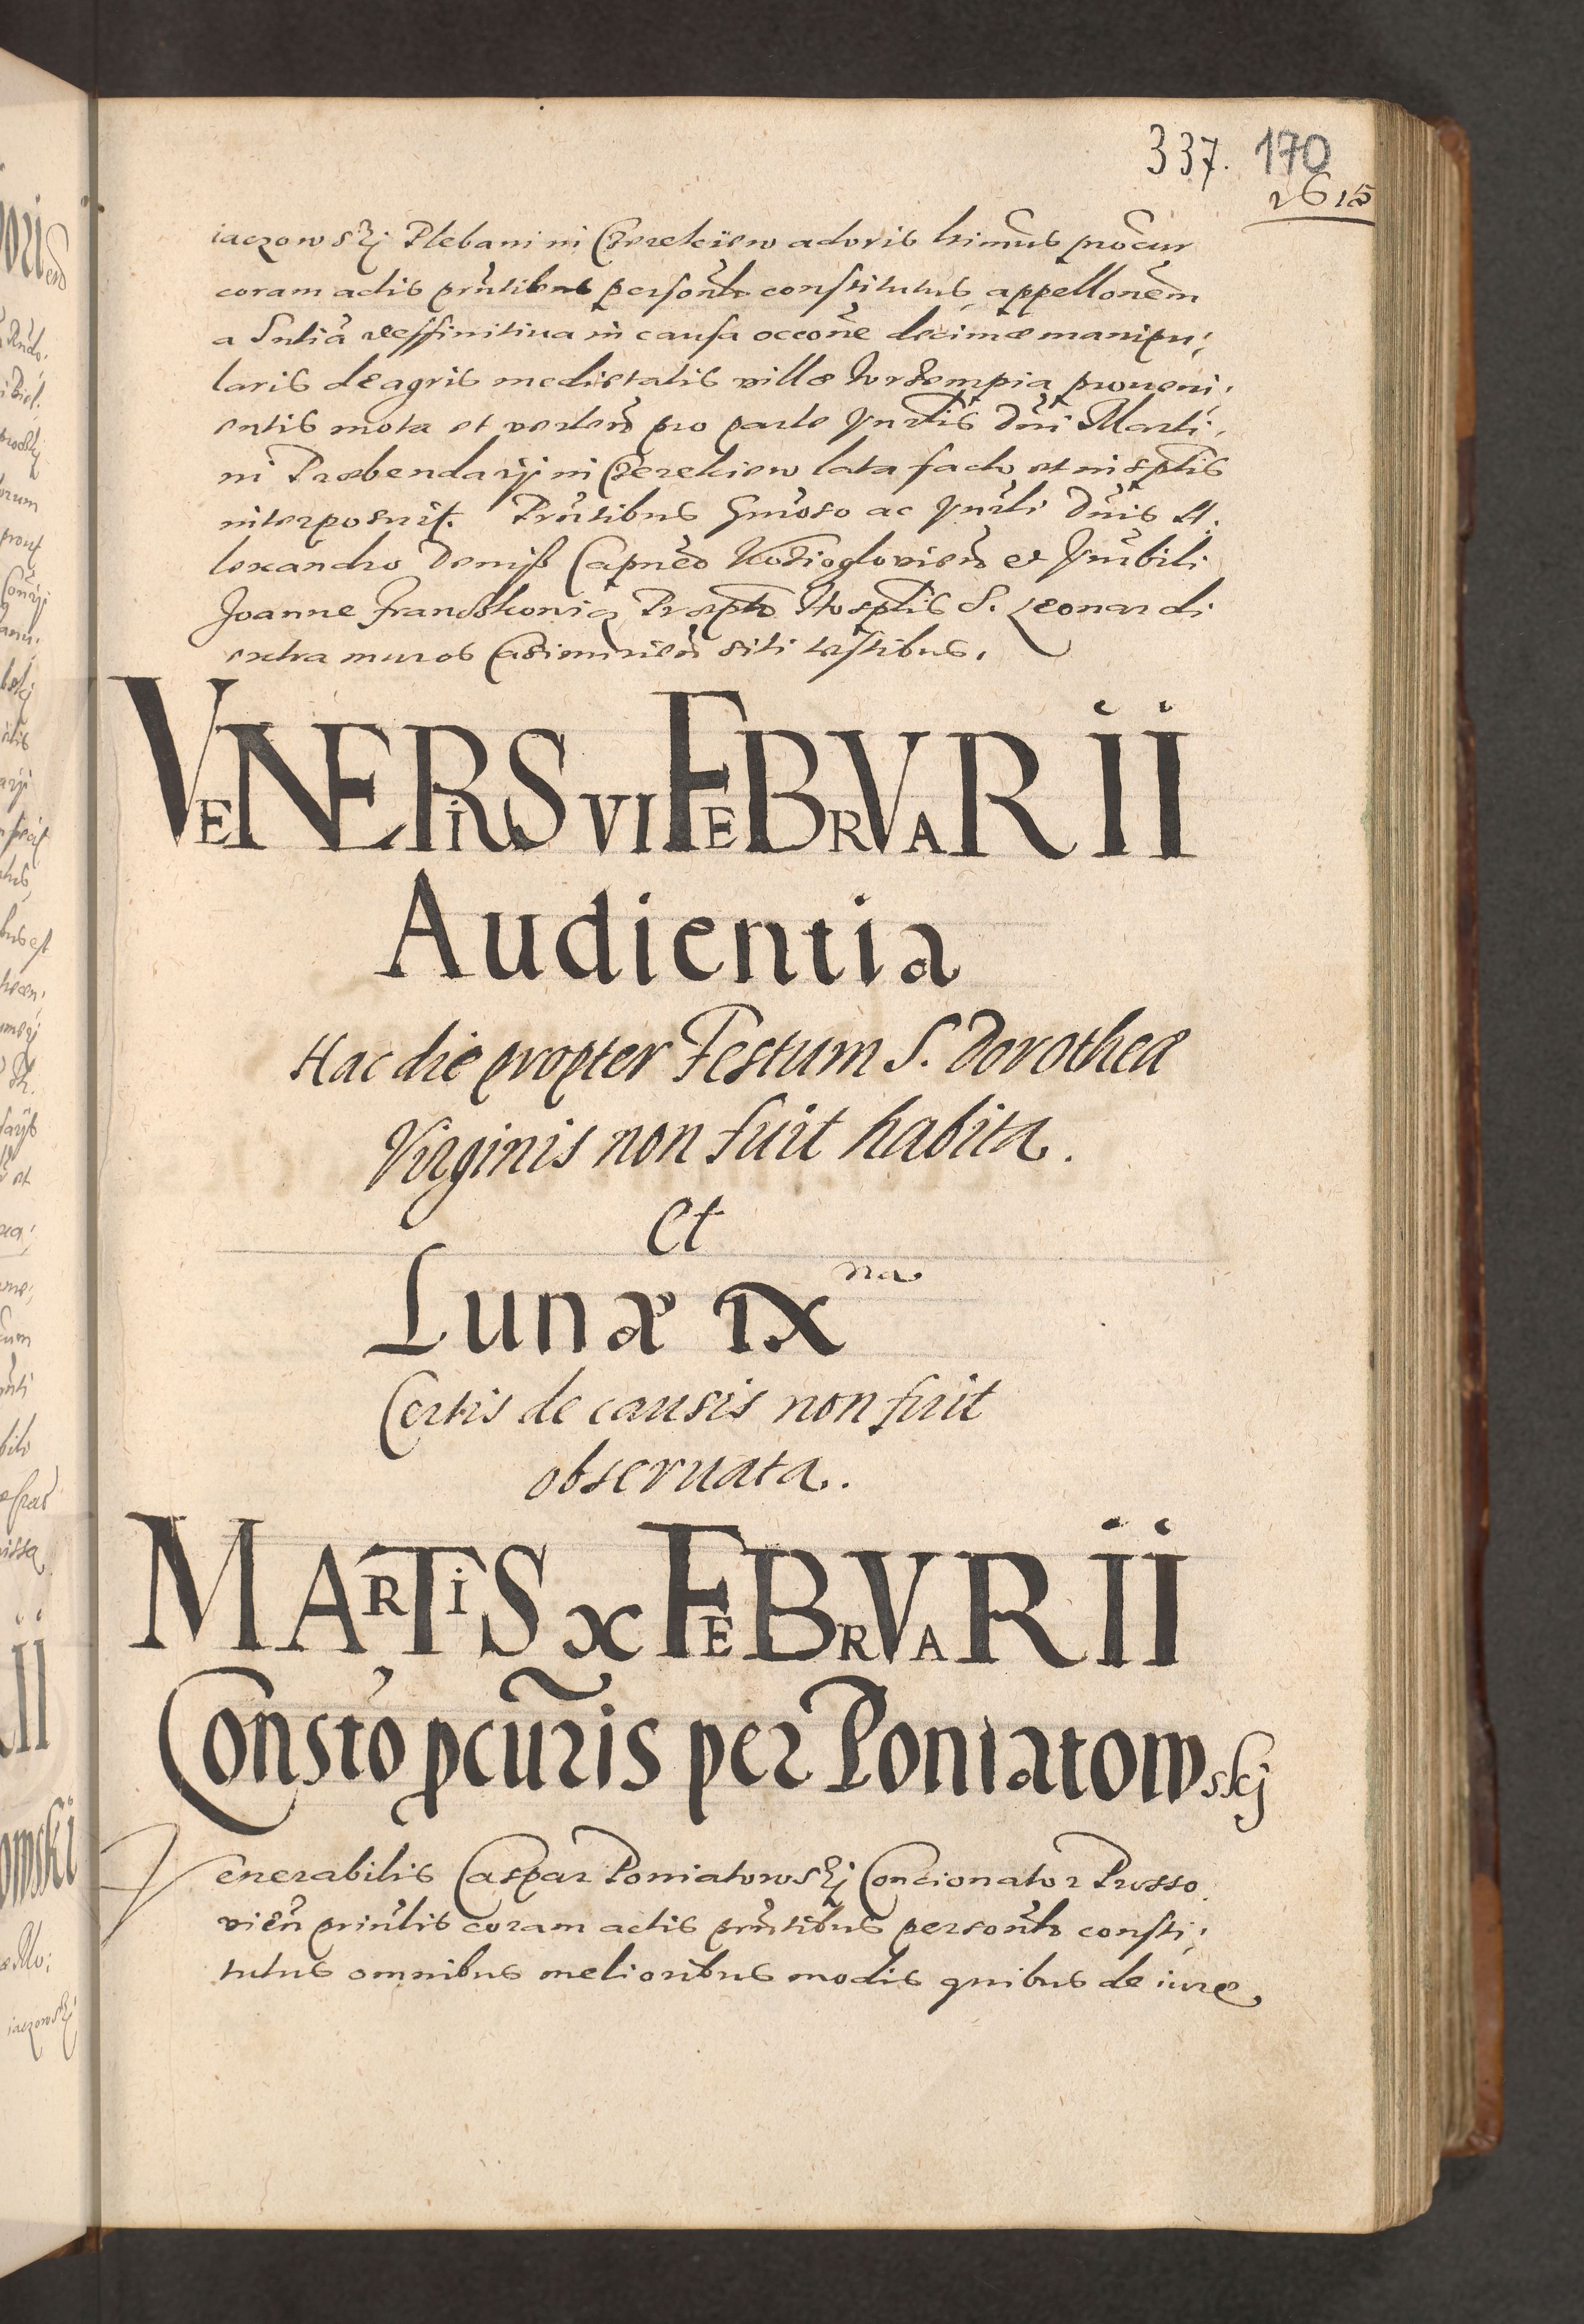 337. 170
1615
iaczowskij Plebani in Czerekiew actoris ltimus procur
coram actis prntibus personlr constitutus, appellonem
a Sntia deffinitiua in causa occone decimæ manipu;
laris de agris medietatis villæ proueni;
entis mota et verten pro parte Vnrlis Dni Marti,
ni Præbendarij in Czerekiew lata facto et in sptis
interposuit. Prntibus Gnroso ac Vnrli Dnis A;
lexandro Deniss Capneo et Vnrbili
Joanne Franckowicz Præpto Hosptlis S. Leonardi
extra muros Casimirien siti testibus.
VENERIS VI FEBRVARII
Audientia
Hac die propter Festum S. Dorotheæ
Virginis non fuit habita.
Et
Lunæ IX na
Certis de causis non fuit
obseruata.
MARTIS X FEBRVARII
Consto pcuris per Poniatowskj
Venerabilis Caspar Poniatowskj Concionator Prosso
vien prinlis coram actis prntibus personlr consti;
tutus omnibus melioribus modis quibus de iure